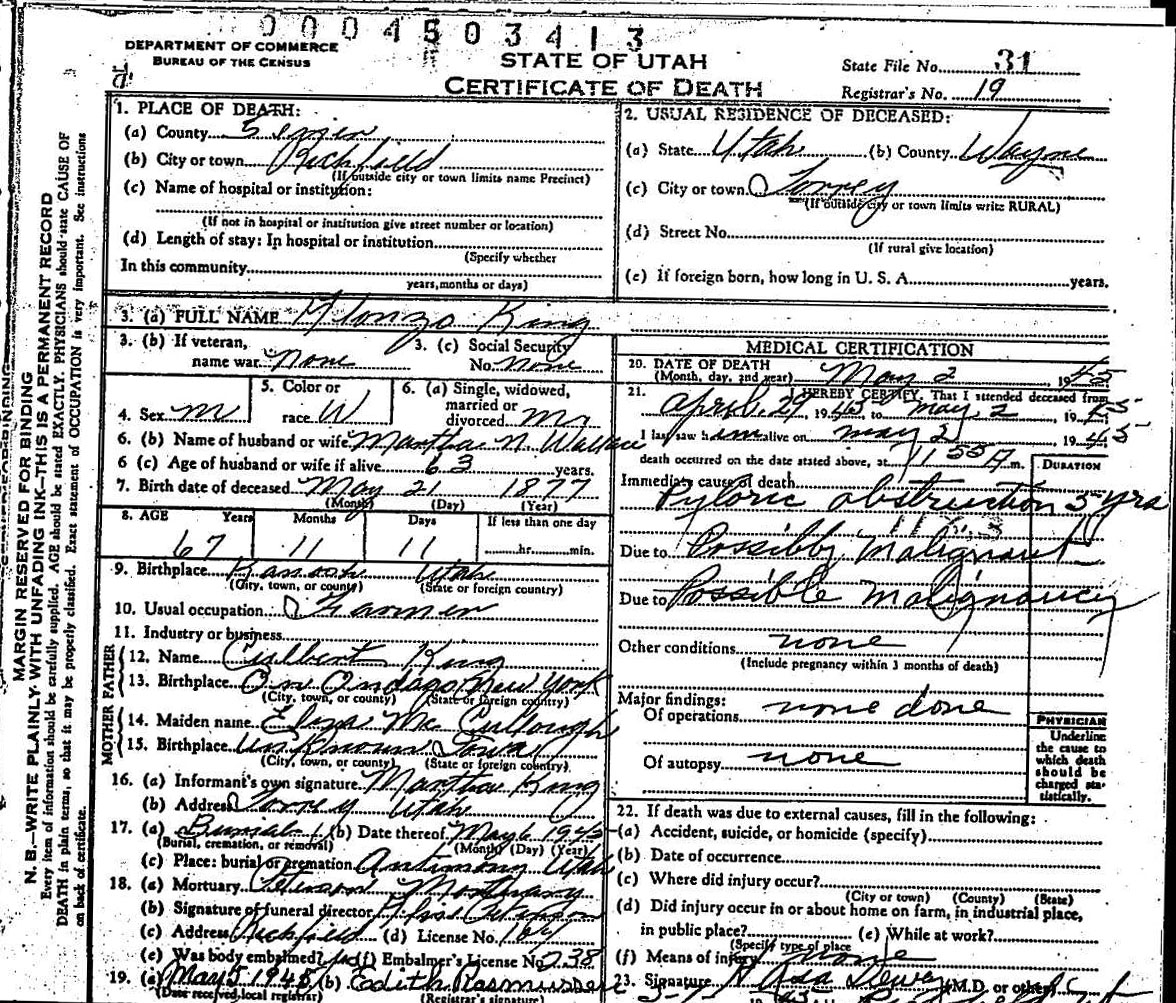 0004503413
DEPARTMENT OF COMMERCE
BUREAU OF THE CENSUS
STATE OF UTAH
CERTIFICATE OF DEATH
State File No. 31
Registrar's No. 19
MARGIN RESERVED FOR BINDING
N. B.—WRITE PLAINLY WITH UNFADING INK—THIS IS A PERMANENT RECORD
Every item of information should be carefully supplied. AGE should be stated EXACTLY. PHYSICIANS should state CAUSE OF
DEATH in plain terms, so that it may be properly classified. Exact statement of OCCUPATION is very important. See instructions
on back of certificate.
1. PLACE OF DEATH:
(a) County Sevier
(b) City or town Richfield
(If outside city or town limits name Precinct)
(c) Name of hospital or institution:
(If not in hospital or institution give street number or location)
(d) Length of stay: In hospital or institution
(Specify whether
In this community
years, months or days)
2. USUAL RESIDENCE OF DECEASED:
(a) State Utah (b) County Wayne
(c) City or town Torrey
(If outside city or town limits write RURAL)
(d) Street No.
(If rural give location)
(e) If foreign born, how long in U. S. A. years.
3. (a) FULL NAME Alonzo King
3. (b) If veteran, 3. (c) Social Security
name war None No. None
4. Sex M 5. Color or race W 6. (a) Single, widowed, married or divorced Ma
6. (b) Name of husband or wife Martha N. Wallace
6 (c) Age of husband or wife if alive 63 years.
7. Birth date of deceased May 21 1877
(Month) (Day) (Year)
8. AGE Years Months Days If less than one day
67 11 11 hr. min.
9. Birthplace Kanosh Utah
(City, town, or county) (State or foreign country)
10. Usual occupation Farmer
11. Industry or business
FATHER
12. Name Culbert King
13. Birthplace On Ondago New York
(City, town, or county) (State or foreign country)
MOTHER
14. Maiden name Eliza McCullough
15. Birthplace Unknown Iowa
(City, town, or county) (State or foreign country)
16. (a) Informant's own signature Martha King
(b) Address Torrey Utah
17. (a) Burial (b) Date thereof May 6 1945
(Burial, cremation, or removal) (Month) (Day) (Year)
(c) Place: burial or cremation Antimony Utah
18. (a) Mortuary Mortuary
(b) Signature of funeral director
(c) Address Richfield (d) License No. 167
(e) Was body embalmed? yes (f) Embalmer's License No. 238
19. (a) May 5 1945 (b) Edith Rasmussen
(Date received local registrar) (Registrar's signature)
MEDICAL CERTIFICATION
20. DATE OF DEATH
(Month, day, and year) May 2, 1945
21. I HEREBY CERTIFY, That I attended deceased from
April, 29 1945 to May, 2 1945
I last saw him alive on May 2 1945
death occurred on the date stated above, at 11 55 A. m.
DURATION
Immediate cause of death
Pyloric obstruction 5 yrs
Due to Possibly Malignant
Due to Possible Malignancy
Other conditions none
(Include pregnancy within 3 months of death)
Major findings:
Of operations none done
Of autopsy none
PHYSICIAN
Underline
the cause to
which death
should be
charged sta-
tistically.
22. If death was due to external causes, fill in the following:
(a) Accident, suicide, or homicide (specify)
(b) Date of occurrence
(c) Where did injury occur?
(City or town) (County) (State)
(d) Did injury occur in or about home on farm, in industrial place,
in public place? (e) While at work?
(Specify type of place
(f) Means of injury none
23. Signature (M.D. or other)